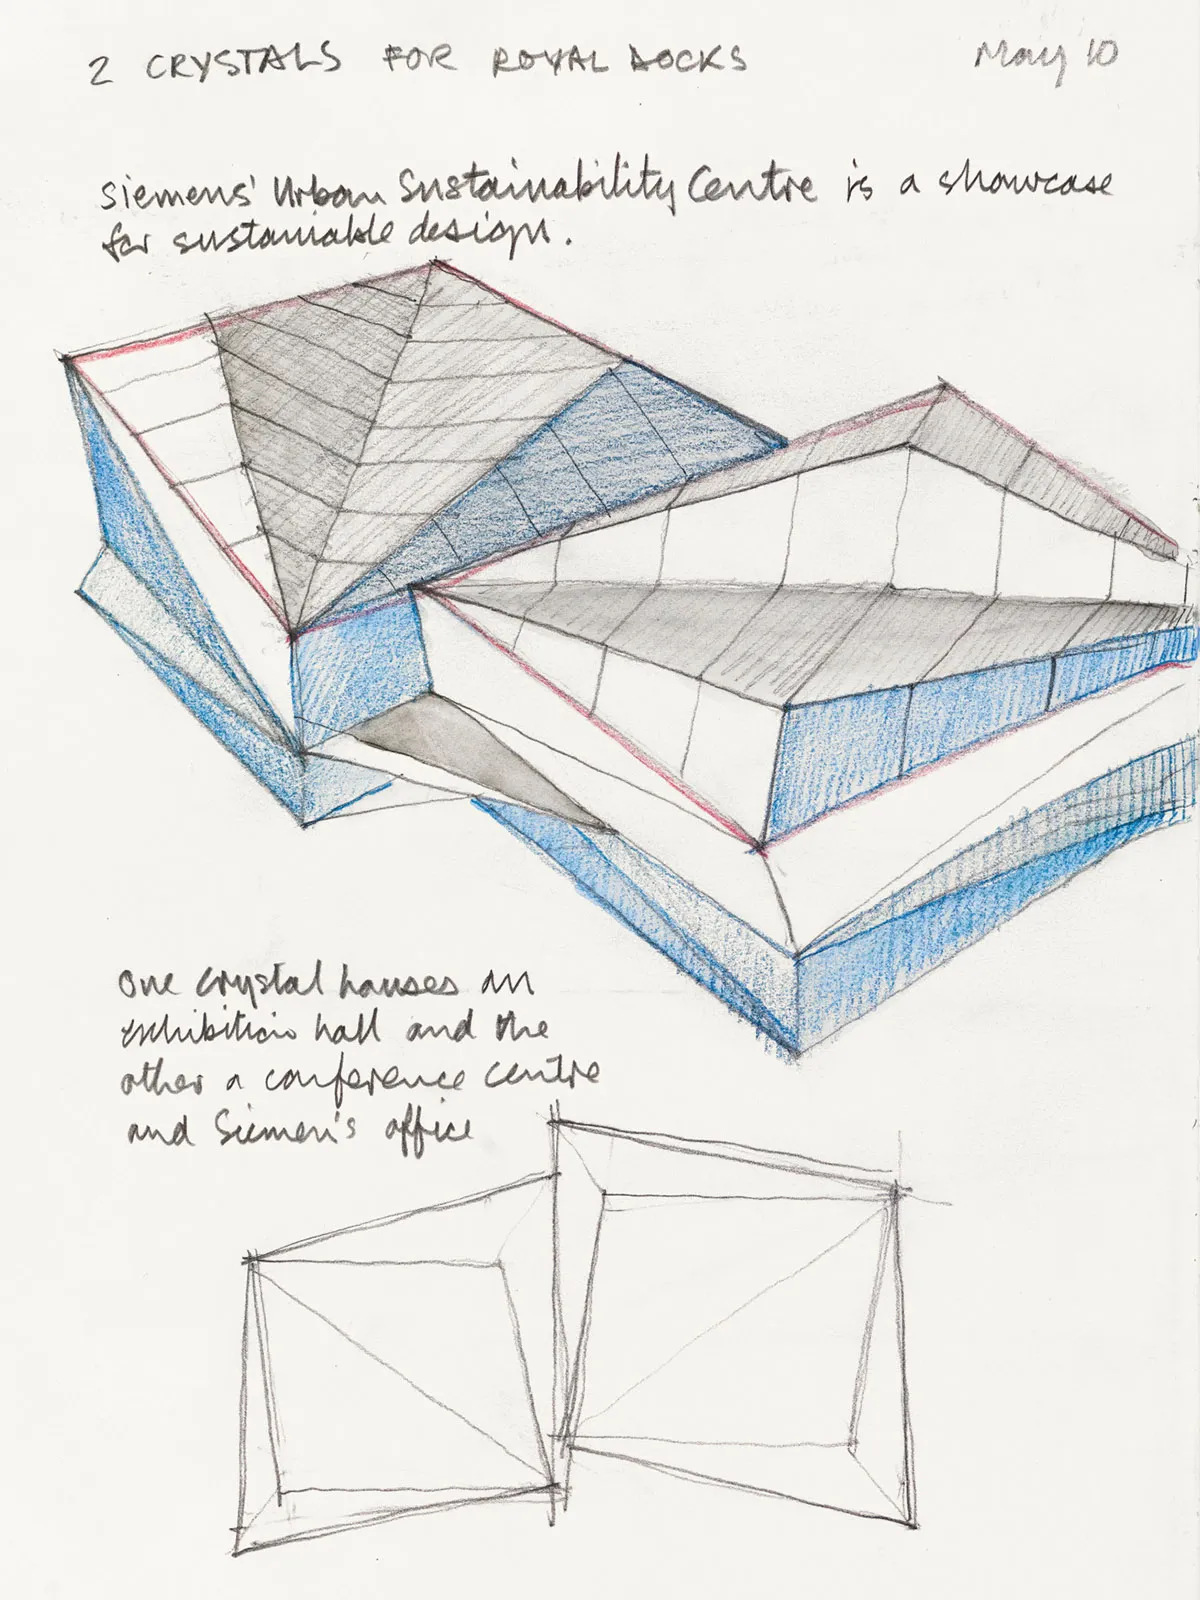 2 CRYSTALS FOR ROYAL DOCKS May 10
Siemens' Urban Sustainability Centre is a showcase
for sustainable design.
One crystal houses an
exhibition hall and the
other a conference centre
and Siemen's office